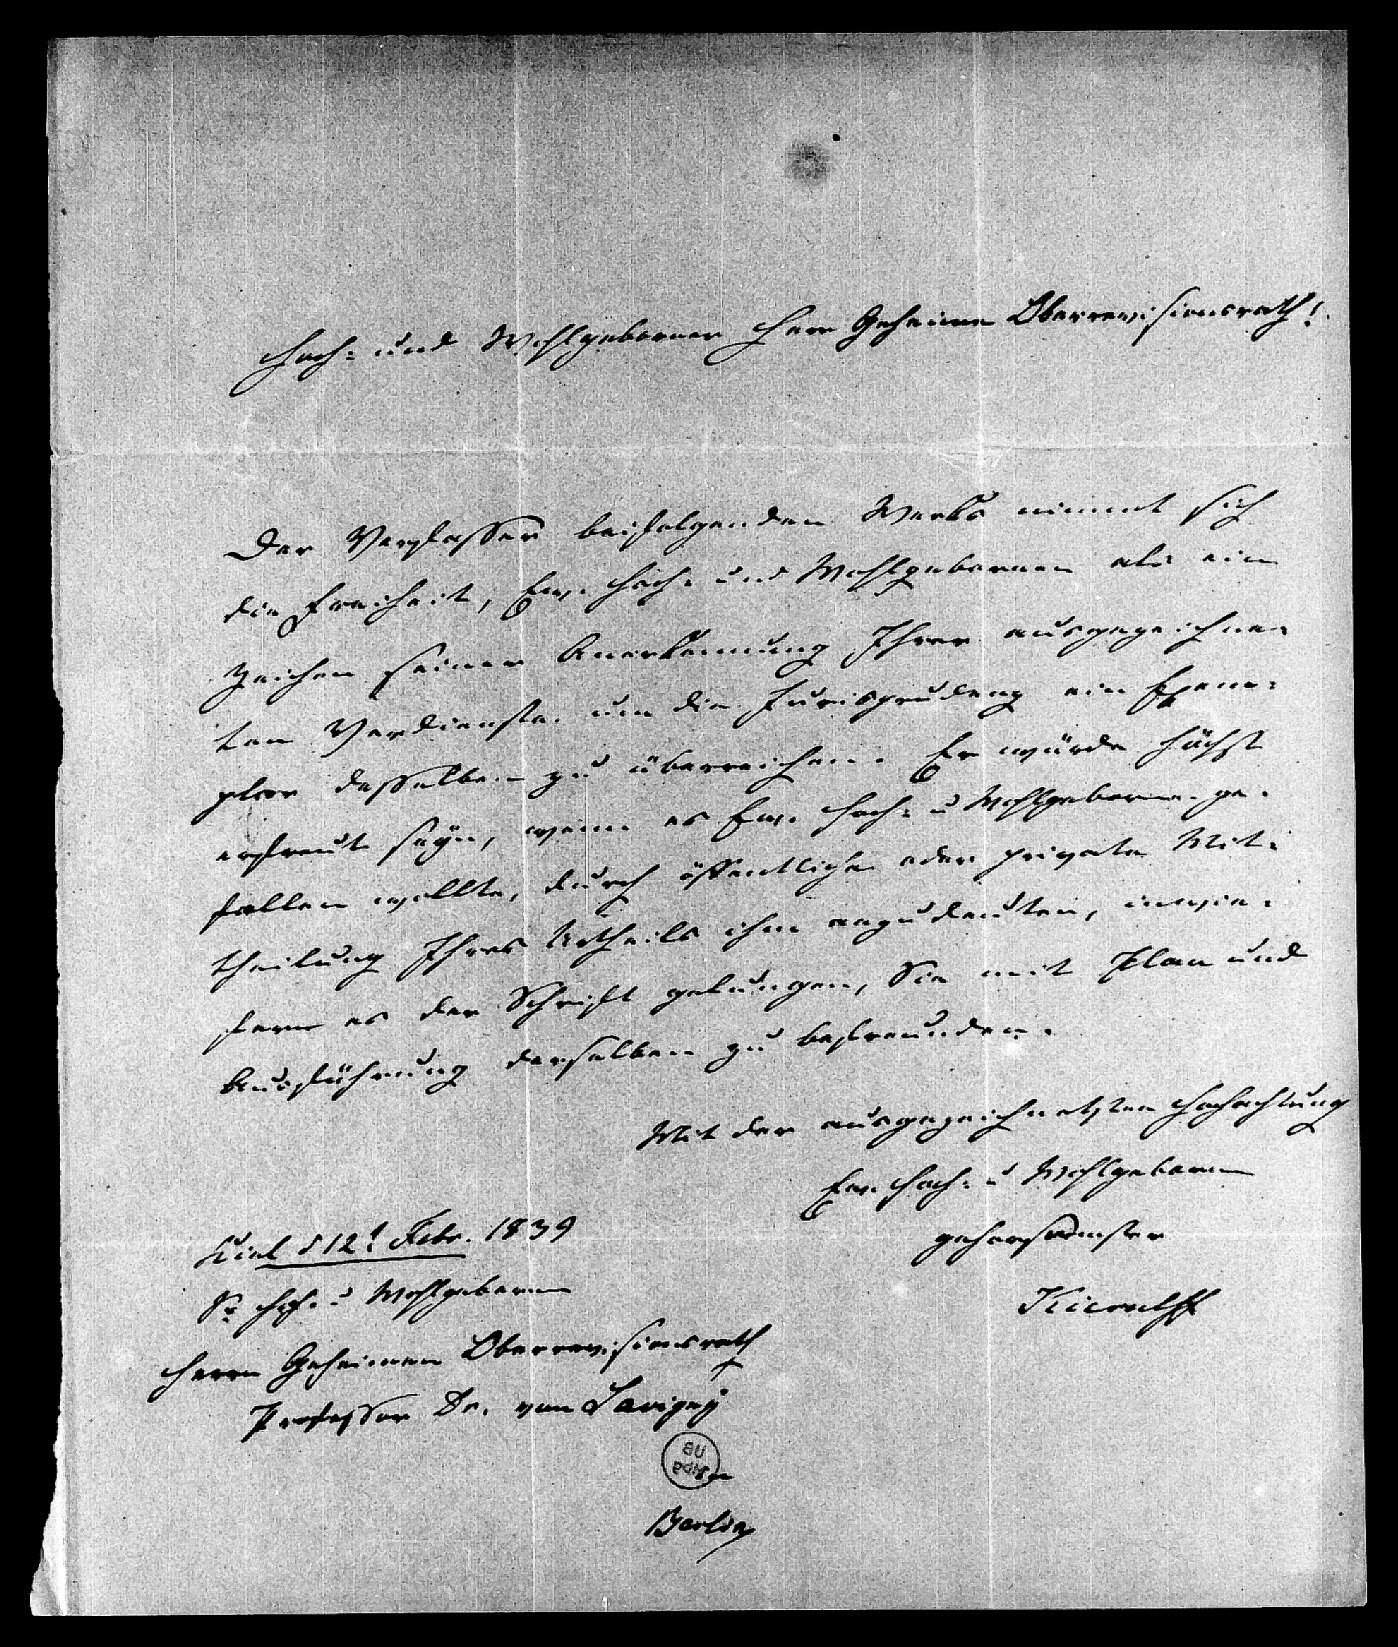 Hoch- und Wohlgeborner Herr Geheimer Oberrevisionsrath!
Der Verfasser beifolgenden Werks nimmt sich
die Freiheit, Ew. Hoch- und Wohlgeboren als ein
Zeichen seiner Anerkennung Ihrer ausgezeichne-
ten Verdienste um die Jurisprudenz ein Exem-
plar desselben zu überreichen. Er würde höchst
erfreut seyn, wenn es Ew. Hoch- u Wohlgeboren ge-
fallen wollte, durch öffentliche oder private Mit-
theilung Ihres Urtheils ihm anzudeuten, inwie-
fern es der Schrift gelungen, Sie mit Plan und
Ausführung derselben zu befreunden.
Mit der ausgezeichnetsten Hochachtung
Ew. Hoch- u Wohlgeboren
gehorsamster
Kierulff
Kiel d 12t Febr. 1839
Sr Hoch- u Wohlgeboren
Herrn Geheimen Oberrevisionsrath
Professor Dr. von Savigny
in
Berlin